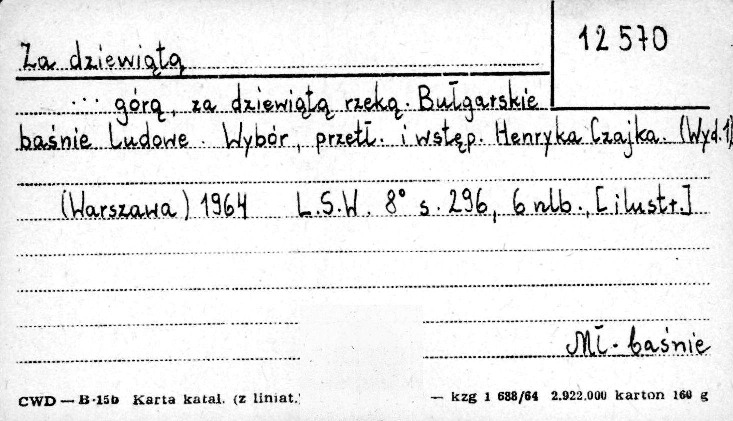 12570
Za dziewiątą
... górą, za dziewiątą rzeką. Bułgarskie
baśnie Ludowe. Wybór, przetł. i wstęp. Henryka Czajka. (Wyd. 1)
(Warszawa) 1964 L.S.W. 8° s. 296, 6 nlb., [ilustr.]
Mł. baśnie
CWD — B-15b Karta katal. (z liniat.
— kzg 1 688/64 2.922.000 karton 160 g